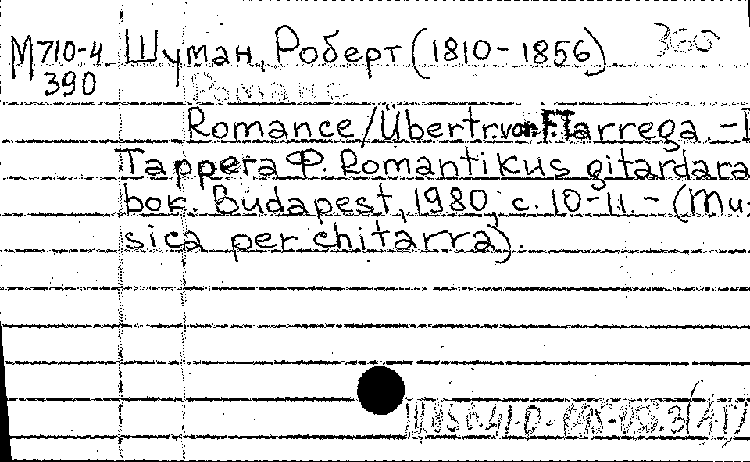 М710-4 Шуман, Роберт (1810-1856). 360
390 Романс
Romance/Übertr. von F. Tarrega. -
Таррега Ф. Romantikus gitárdara
bok. Budapest, 1980, с. 10-11. - (Mu-
sica per chitarra).